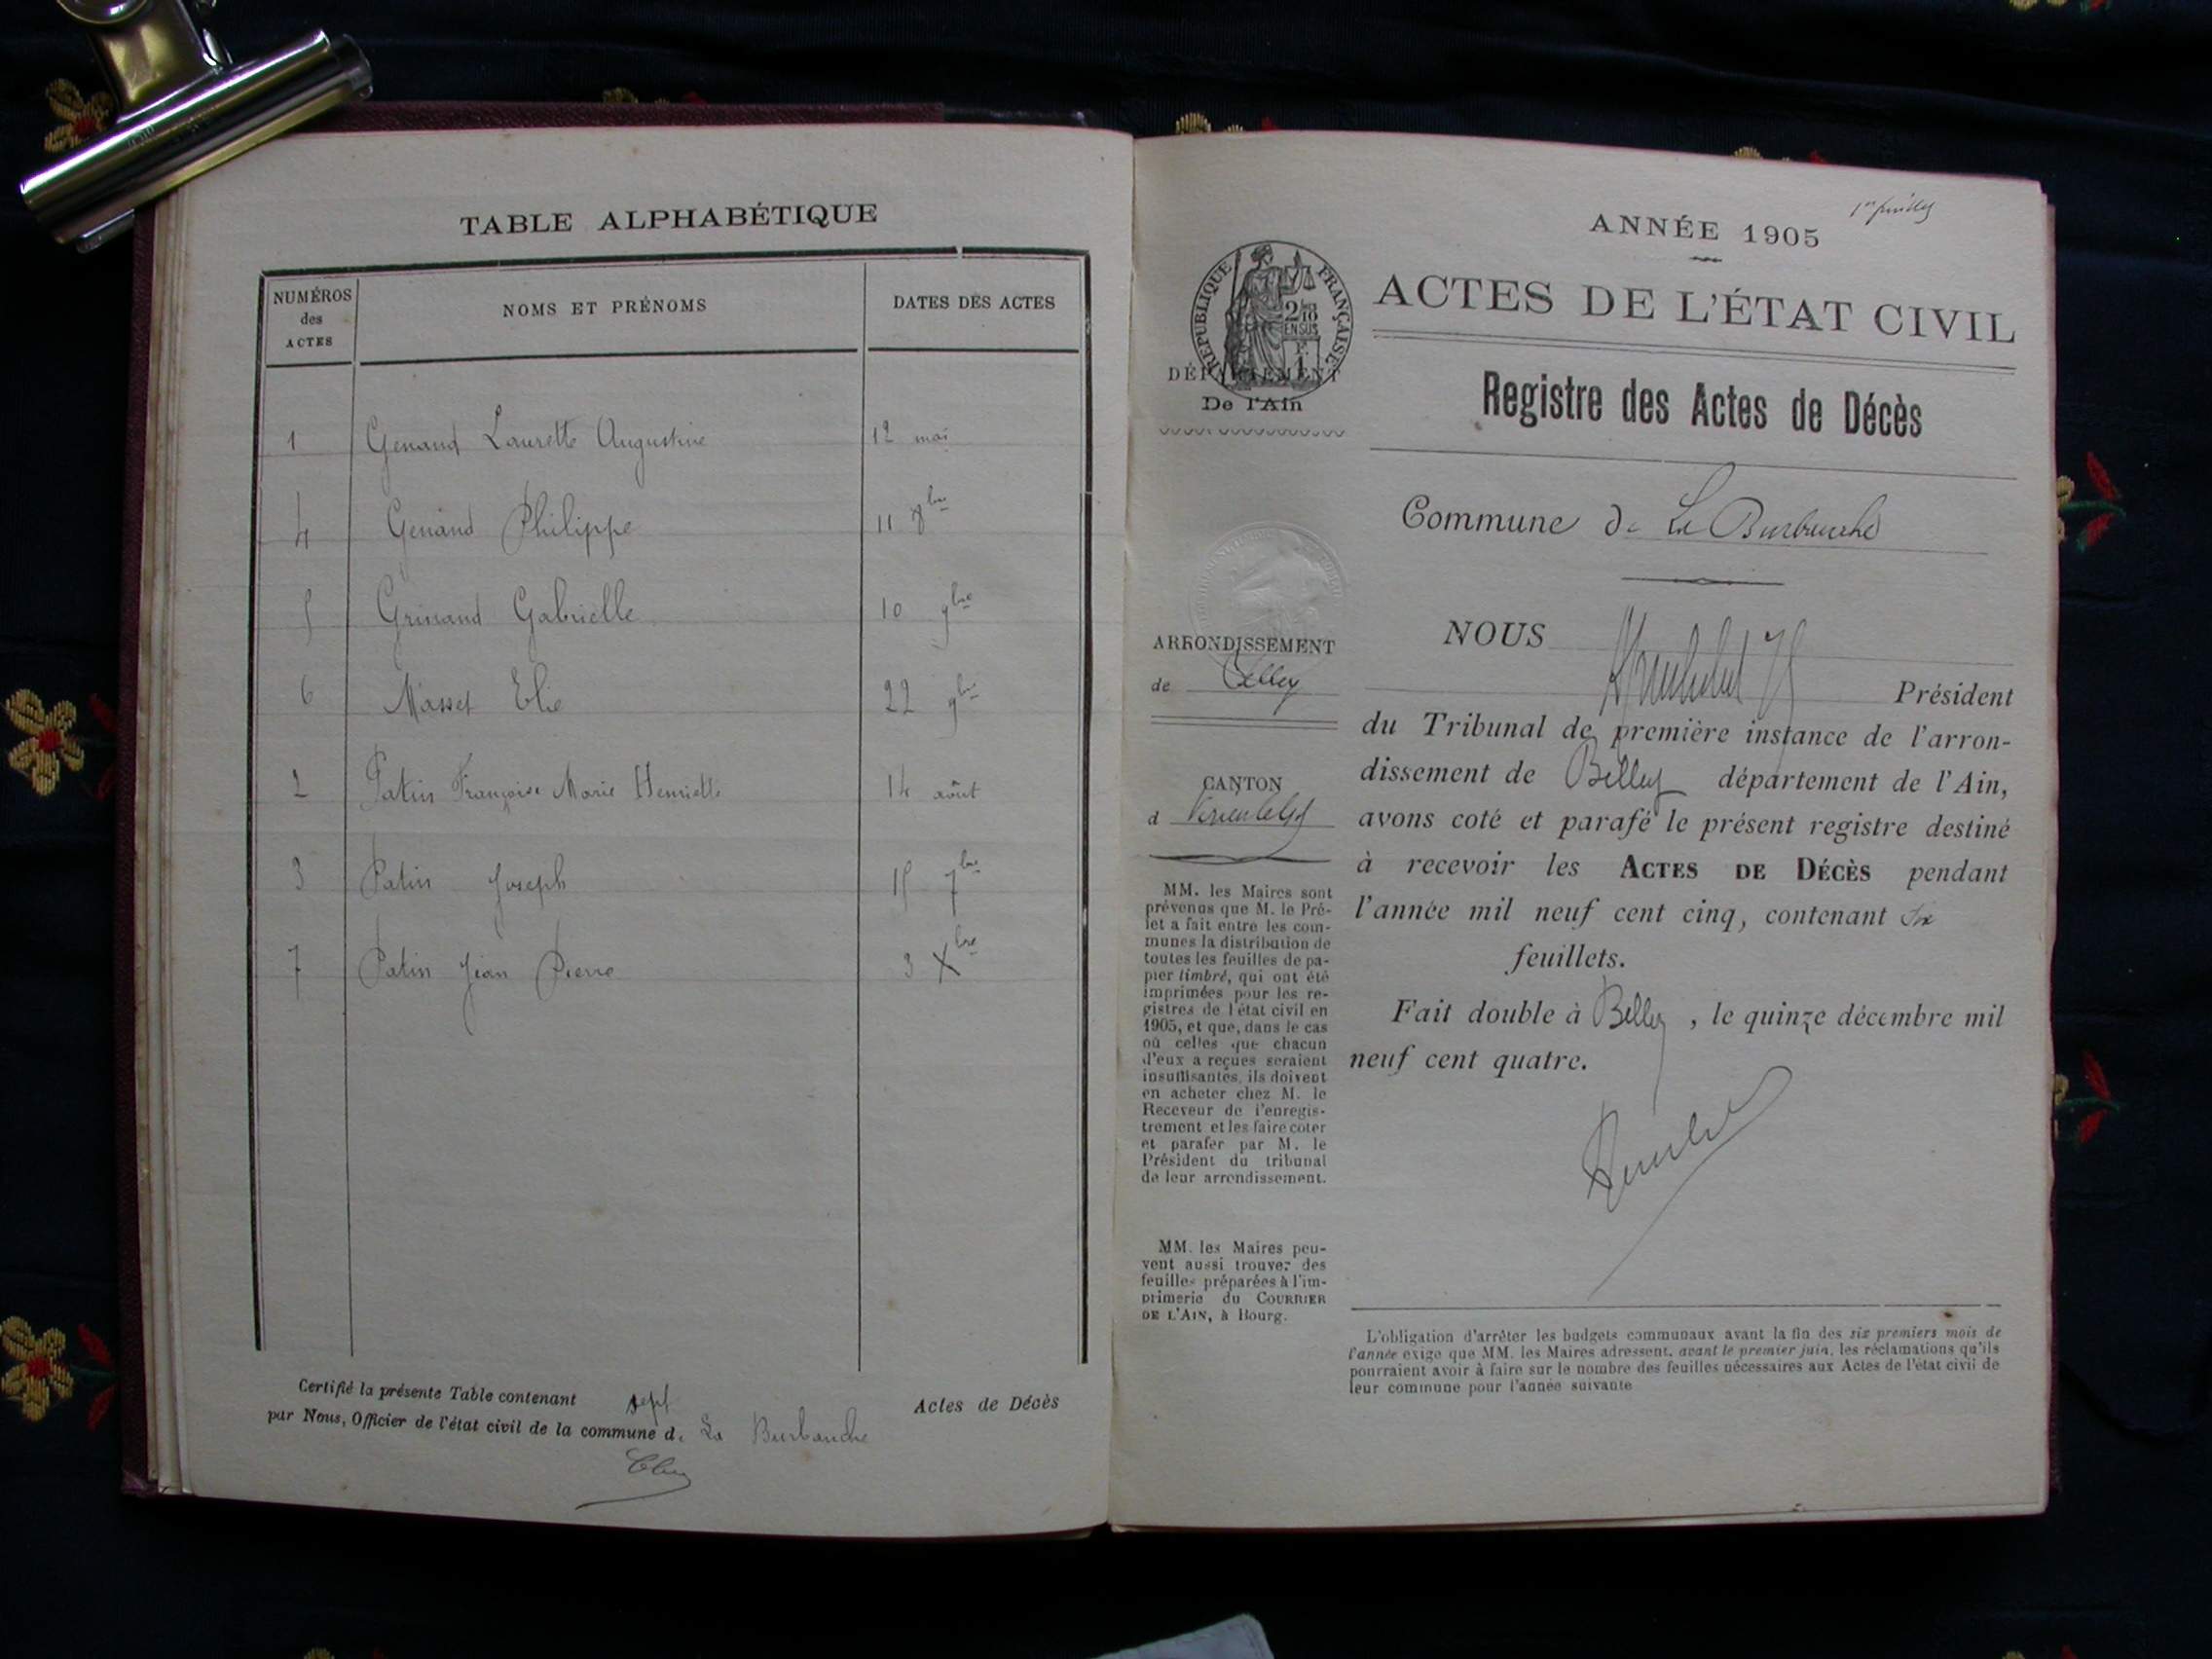 TABLE ALPHABÉTIQUE
NUMÉROS des ACTES
NOMS ET PRÉNOMS
DATES DES ACTES
1 Genand Laurette Augustine 12 mai
4 Genand Philippe 11 8bre
5 Grinand Gabrielle 10 9bre
6 Masset Elie 22 9bre
2 Patin Françoise Marie Henriette 14 août
3 Patin Joseph 15 7bre
7 Patin Jean Pierre 3 Xbre
Certifié la présente Table contenant sept Actes de Décès
par Nous, Officier de l'état civil de la commune d. La Burbanche
1er feuillet
ANNÉE 1905
ACTES DE L'ÉTAT CIVIL
RÉPUBLIQUE FRANÇAISE
2/10 EN SUS
DÉPARTEMENT
De l'Ain
Registre des Actes de Décès
Commune de La Burbanche
ARRONDISSEMENT
de Belley
CANTON
d Virieu le Gd
MM. les Maires sont
prévenus que M. le Pré-
fet a fait entre les com-
munes la distribution de
toutes les feuilles de pa-
pier timbré, qui ont été
imprimées pour les re-
gistres de l'état civil en
1905, et que, dans le cas
où celles que chacun
d'eux a reçues seraient
insuffisantes, ils doivent
en acheter chez M. le
Receveur de l'enregis-
trement et les faire coter
et parafer par M. le
Président du tribunal
de leur arrondissement.
MM. les Maires peu-
vent aussi trouver des
feuilles préparées à l'im-
primerie du COURRIER
DE L'AIN, à Bourg.
NOUS
Président
du Tribunal de première instance de l'arron-
dissement de Belley département de l'Ain,
avons coté et parafé le présent registre destiné
à recevoir les ACTES DE DÉCÈS pendant
l'année mil neuf cent cinq, contenant six
feuillets.
Fait double à Belley, le quinze décembre mil
neuf cent quatre.
L'obligation d'arrêter les budgets communaux avant la fin des six premiers mois de
l'année exige que MM. les Maires adressent, avant le premier juin, les réclamations qu'ils
pourraient avoir à faire sur le nombre des feuilles nécessaires aux Actes de l'état civil de
leur commune pour l'année suivante